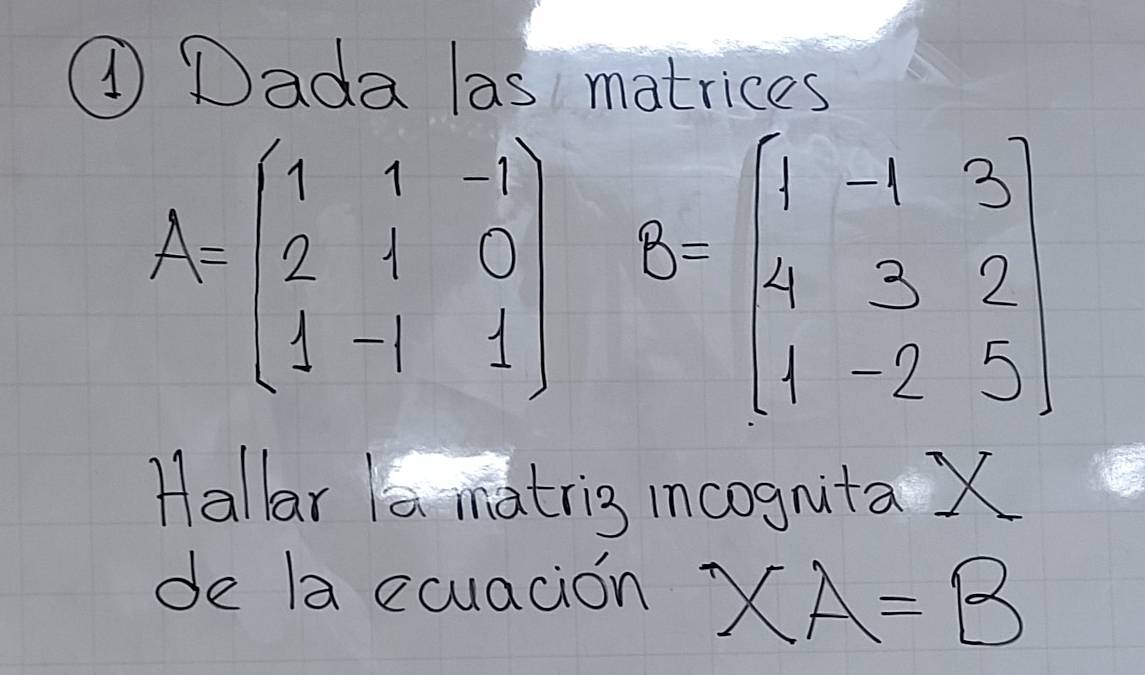 ① Dada las matrices
A= ( 1 1 -1 ) B= [ 1 -1 3 ]
2 1 0 4 3 2
1 -1 1 1 -2 5
Hallar la matriz incognita X
de la ecuación XA=B